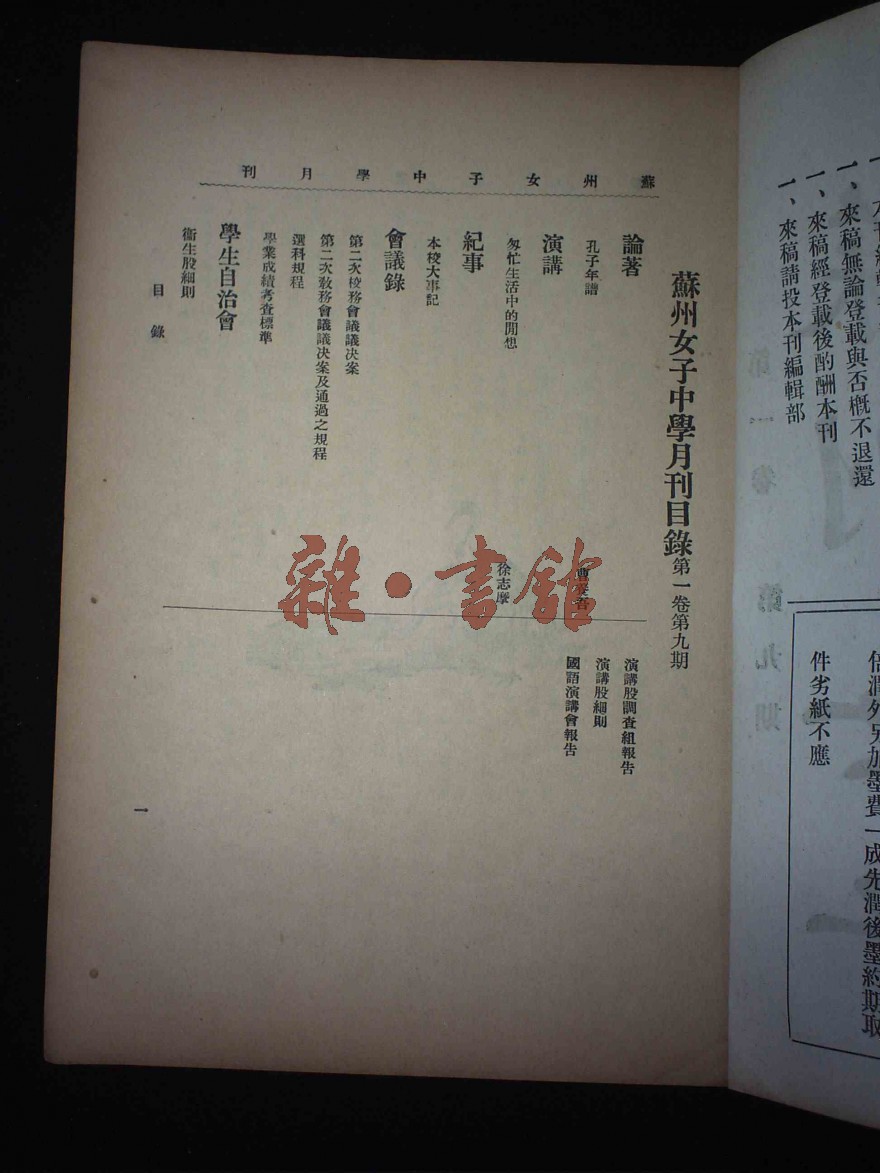 一、來稿無論登載與否概不退還
一、來稿經登載後酌酬本刊
一、來稿請投本刊編輯部
倍潤外另加墨費一成先潤後墨約期取
件劣紙不應
蘇州女子中學月刊
蘇州女子中學月刊目錄第一卷第九期
論著
孔子年譜
演講
匆忙生活中的閒想
徐志摩
紀事
本校大事記
會議錄
第二次校務會議議决案
第二次敎務會議議决案及通過之規程
選科規程
學業成績考查標準
學生自治會
衞生股細則
演講股調查組報告
演講股細則
國語演講會報告
目錄
一
雜·書館